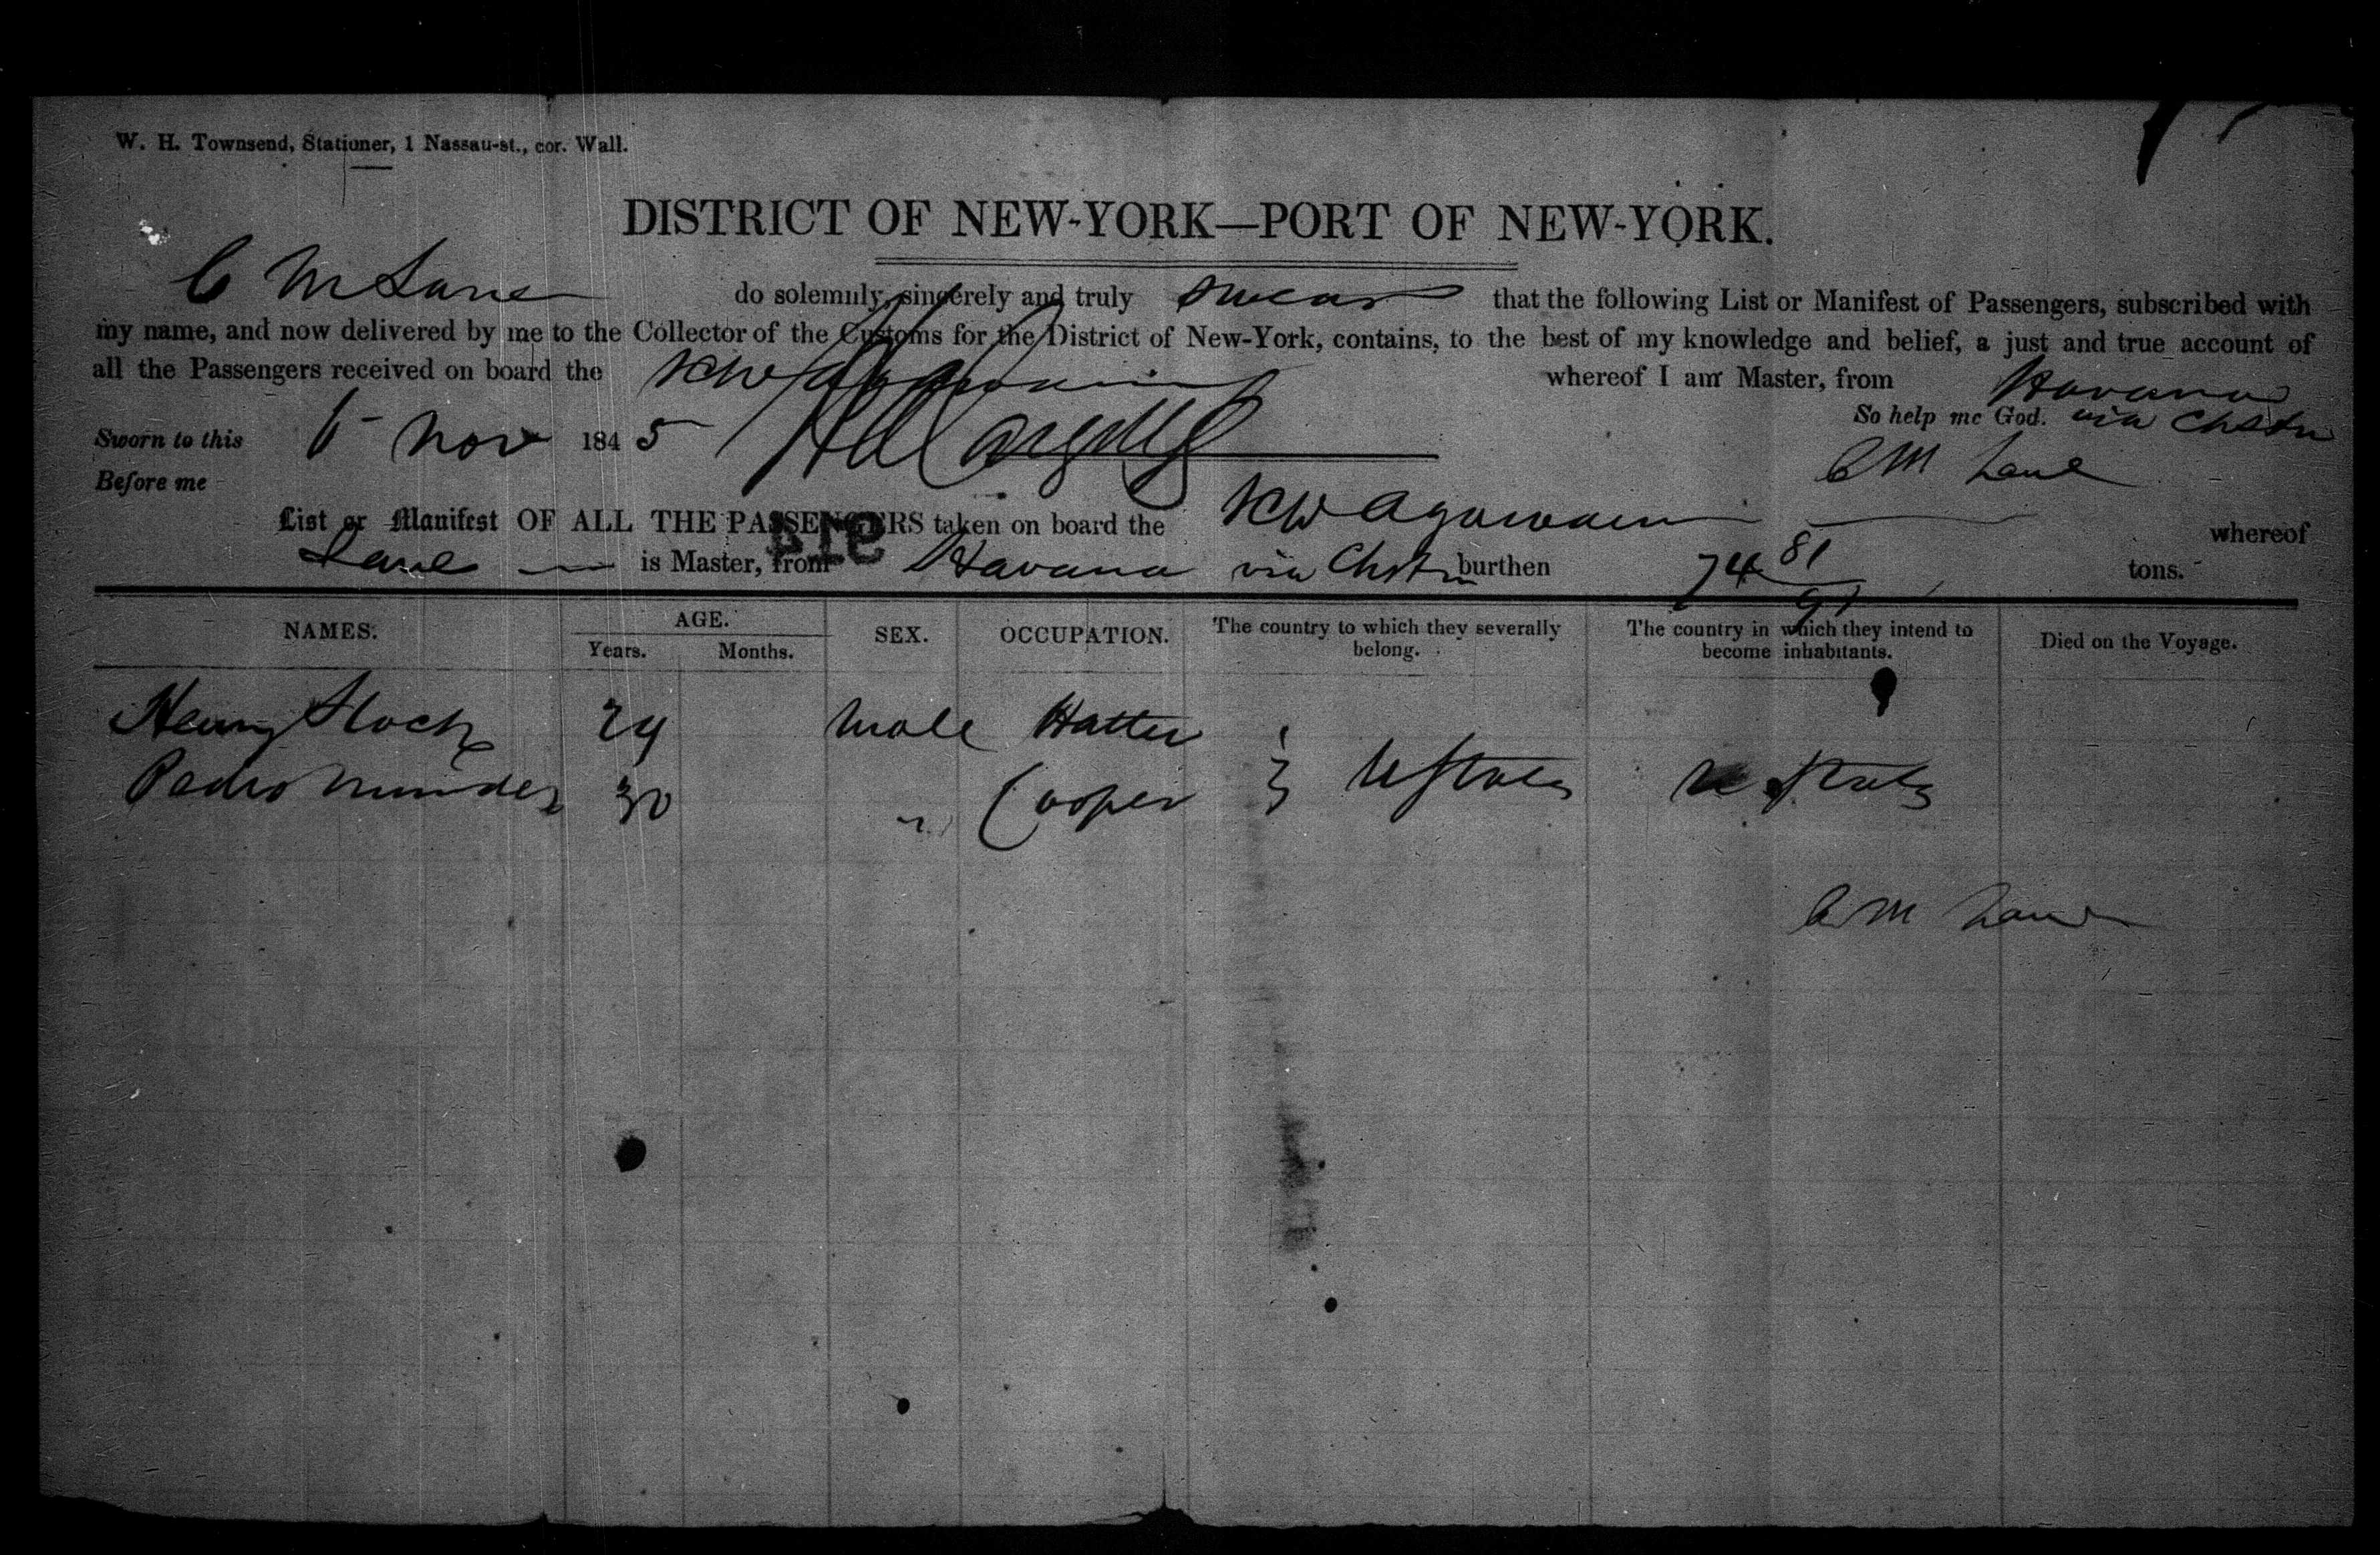 W. H. Townsend, Stationer, 1 Nassau-st., cor. Wall.
DISTRICT OF NEW-YORK—PORT OF NEW-YORK.
C M Lane do solemnly, sincerely and truly swear that the following List or Manifest of Passengers, subscribed with
my name, and now delivered by me to the Collector of the Customs for the District of New-York, contains, to the best of my knowledge and belief, a just and true account of
all the Passengers received on board the whereof I am Master, from Havana
So help me God. via Chstn
Sworn to this Nov 1845
C M Lane
Before me
List or Manifest OF ALL THE PASSENGERS taken on board the whereof
914
Lane is Master, from Havana via Chstn burthen 74 81 tons.
NAMES. AGE. SEX. OCCUPATION. The country to which they severally belong. The country in which they intend to become inhabitants. Died on the Voyage.
Years. Months.
Henry 29 Male Hatter
Pedro 30 " Cooper } U States U States
C M Lane